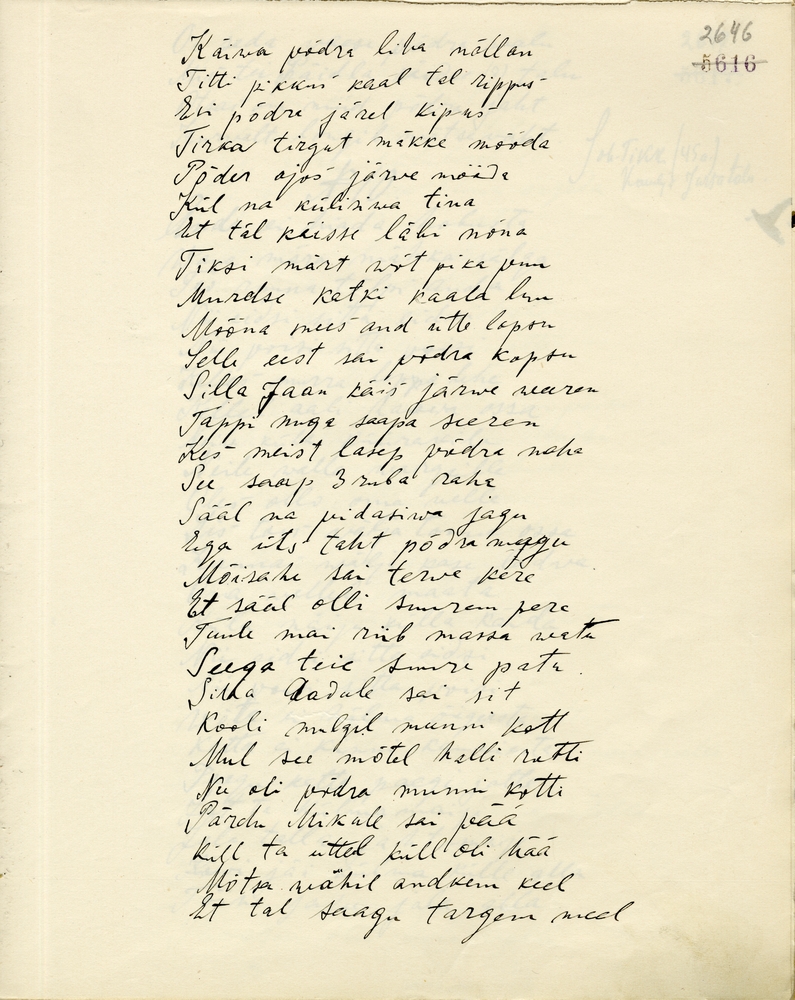 2646
5616
Käiwa põdra liha nällan
Titti pikkus kaal tal rippus
Evi põdra järel kipus
Tirka tirgat mäkke mööda
Põder ojos järwe mööda
Kül na külisiwa tina
Et täl käisse läbi nõna
Tiksi märt wõt pika puu
Murdse katki kaala luu
Mõõna mees and ütte lopsu
Selle eest sai põdra kopsu
Silla Jaan käis järwe weeren
Tappi nuga saapa seeren
Kes meist lasep põdra naha
See saap 3 rubla raha
Sääl na pidasiwa jagu
Ega üts taht põdra magu
Mõisahe sai terwe kere
Et sääl olli suurem pere
Tuule mai riib massa watu
Seega teie suure patu
Silla Aadule sai sit
Kooli nulgil munni kott
Mul see mõtel halli rutti
Nu oli põdra munni kotti
Pärdu Mikule sai pää
Küll ta üttel küll oli hää
Mõtsa wähil andkem keel
Et tal saagu targem meel